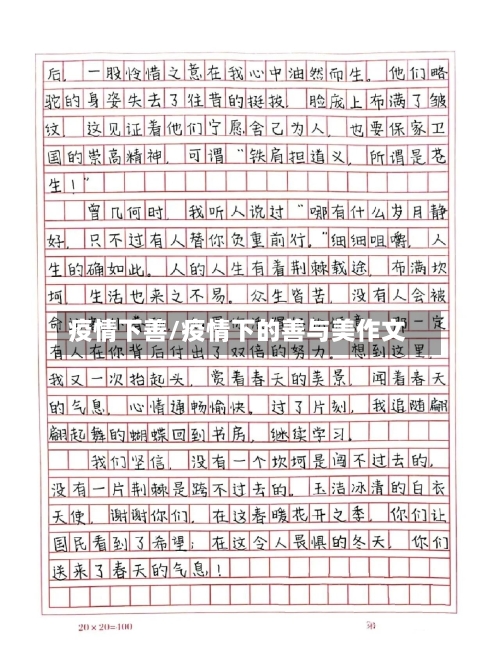 后，一股怜惜之意在我心中油然而生。他们略
驼的身姿失去了往昔的挺拔，脸庞上布满了皱
纹，这见证着他们宁愿舍己为人，也要保家卫
国的崇高精神，可谓“铁肩担道义，所谓是苍
生！”
曾几何时，我听人说过“哪有什么岁月静
好，只不过有人替你负重前行。”细细咀嚼，人
生的确如此。人的人生有着荆棘载途，布满坎
坷，生活也来之不易。众生皆苦，没有人会被
疫情下善/疫情下的善与美作文
一定
有人在你背后付出了双倍的努力。想到这里，
我又一次抬起头，赏着春天的美景，闻着春天
的气息，心情通畅愉快。过了片刻，我追随翩
翩起舞的蝴蝶回到书房，继续学习。
我们坚信，没有一个坎坷是闯不过去的，
没有一片荆棘是跨不过去的。玉洁冰清的白衣
天使，谢谢你们，在这春暖花开之季，你们让
国民看到了希望；在这令人畏惧的冬天，你们
送来了春天的气息！
20×20=400